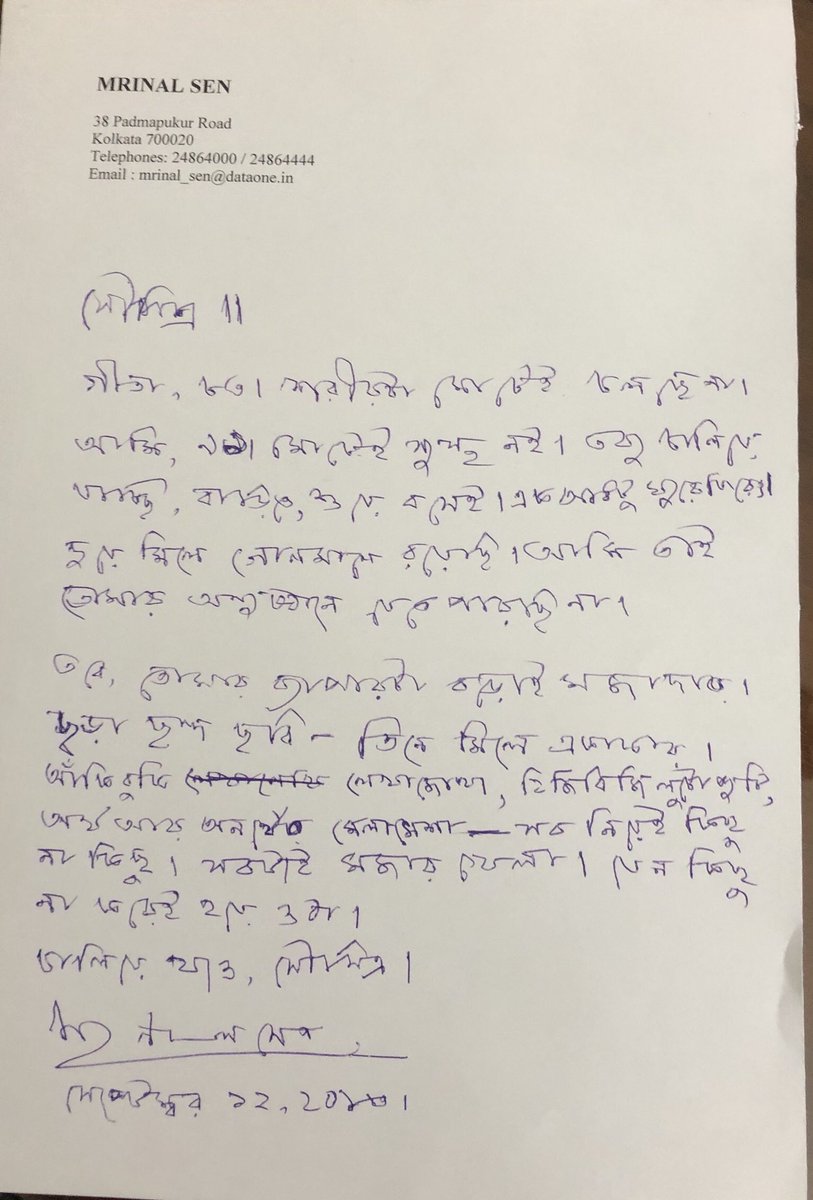 MRINAL SEN
38 Padmapukur Road
Kolkata 700020
Telephones: 24864000 / 24864444
Email : mrinal_sen@dataone.in
সৌমিত্র ॥
গীতা, শরীরটা মোটেই চলছে না।
আমি, মোটেই সুস্থ নই। তবু চালিয়ে
যাচ্ছি, বাড়িতে, শুয়ে বসেই।
দুয়ে মিলে গোলমালে রয়েছি। আমি তাই
তোমার অনুষ্ঠানে যেতে পারছি না।
তবে, তোমার ব্যাপারটা বড়োই মজাদার।
ছড়া ছন্দ ছবি – তিনে মিলে একাকার।
আঁকিবুকি লেখাজোখা, হিজিবিজি
অর্থ আর অনর্থের মেলামেশা — সব নিয়েই কিছু
না কিছু। সবটাই মজার খেলা। যেন কিছু
না করেই হয়ে ওঠা।
চালিয়ে যাও, সৌমিত্র।
মৃণাল সেন
সেপ্টেম্বর ১২,